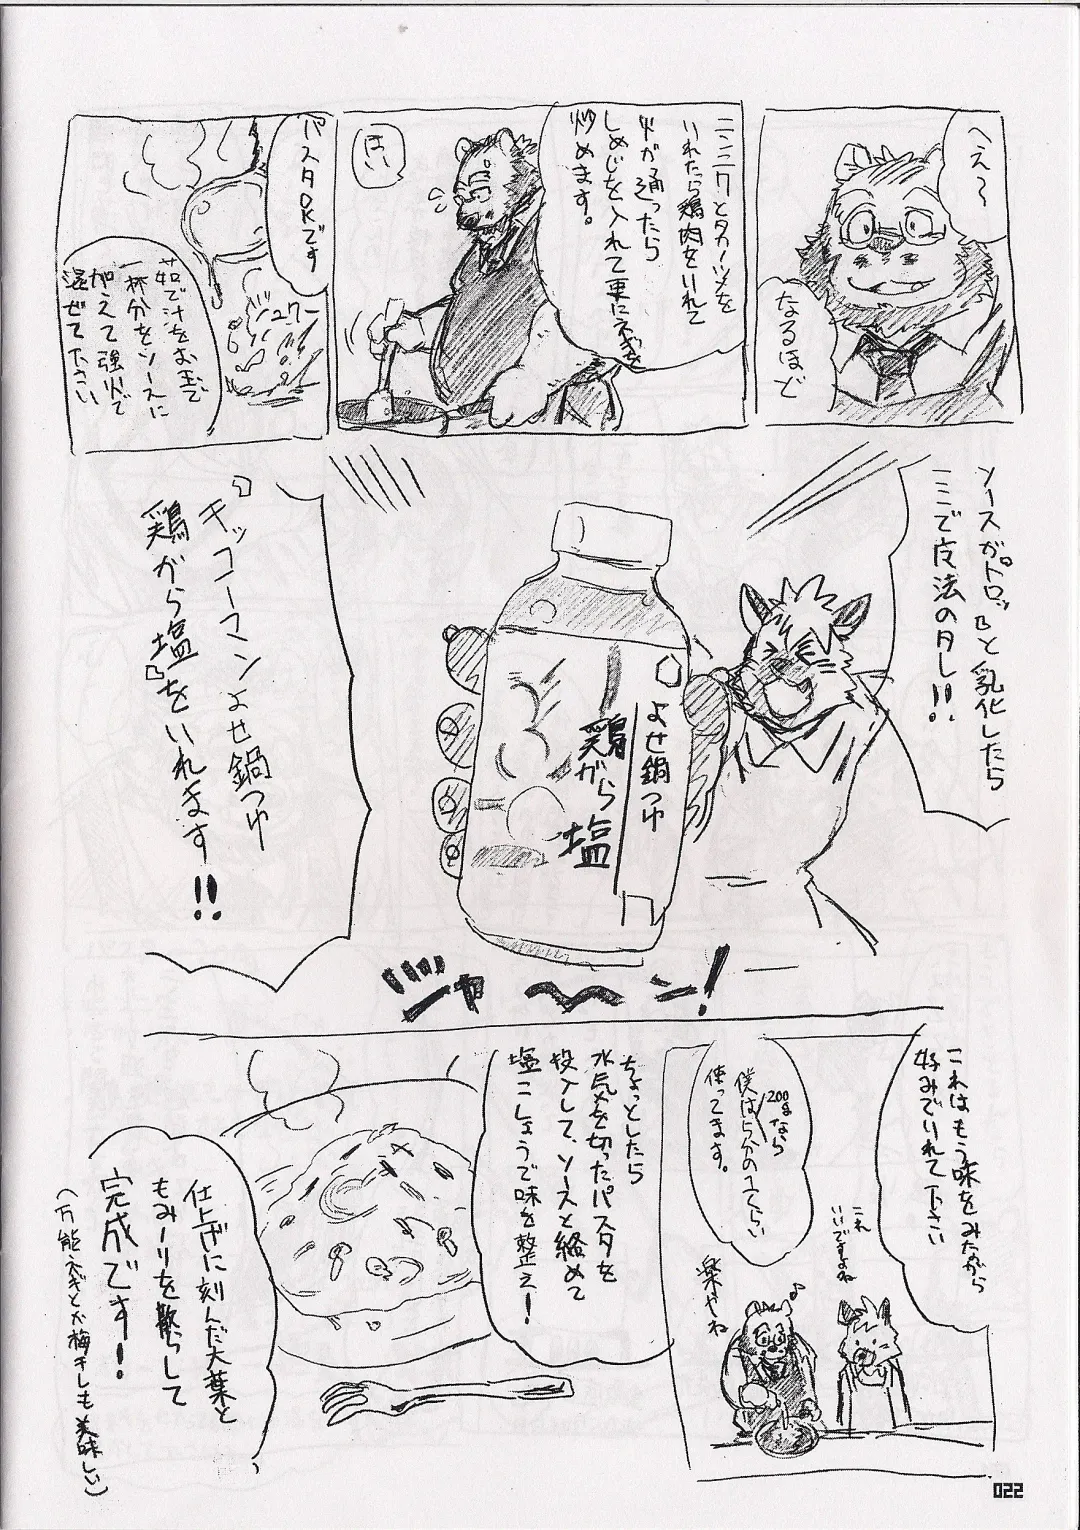 へえ〜
なるほど
ニンニクとタカノツメを
いれたら鶏肉をいれて
火が通ったら
しめじを入れて更に
炒めます。
はい
パスタOKです
ジュワー
茹で汁をお玉で
一杯分をソースに
加えて強火で
混ぜて下さい
ソースがトロッと乳化したら
ここで魔法のタレ!!
『キッコーマンよせ鍋つゆ
鶏がら塩』をいれます!!
よせ鍋つゆ
鶏がら塩
ジャーン!
これはもう味をみながら
好みでいれて下さい
200gなら
僕は1/5分の1くらい
使ってます。
これ
いいですよね
楽やね
ちょっとしたら
水気を切ったパスタを
投入して、ソースと絡めて
塩こしょうで味を整え!
仕上げに刻んだ大葉と
もみのりを散らして
完成です!
(万能ねぎとか梅干しも美味しい)
022